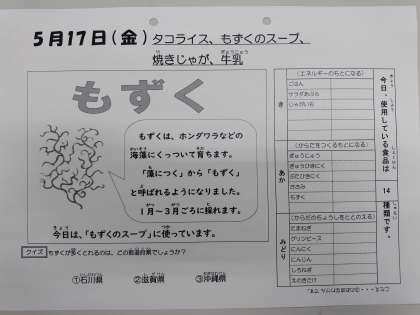 5月17日(金) タコライス、もずくのスープ、
焼きじゃが、牛乳
もずく
もずくは、ホンダワラなどの
海藻にくっついて育ちます。
「藻につく」から「もずく」
と呼ばれるようになりました。
1月~3月ごろに採れます。
今日は、「もずくのスープ」に使っています。
クイズ もずくが多くとれるのは、どの都道府県でしょうか?
①石川県 ②滋賀県 ③沖縄県
今日、使用している食品は
14
種類です。
き
(エネルギーのもとになる)
ごはん
サラダあぶら
じゃがいも
あか
(からだをつくるもとになる)
ぎゅうにゅう
ぎゅうひきにく
ぶたひきにく
ささみ
もずく
みどり
(からだのちょうしをととのえる)
たまねぎ
グリンピース
にんにく
にんじん
しろねぎ
えのきたけ